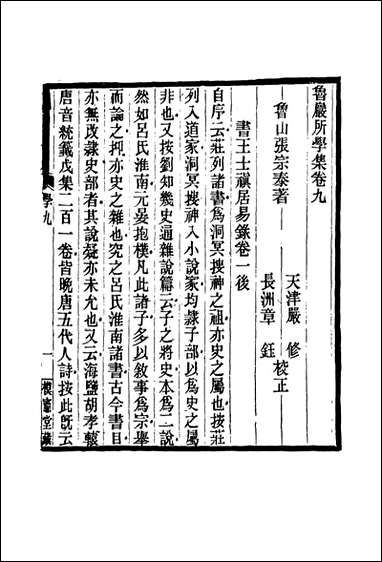 魯巖所學集卷九
魯山張宗泰著
天津嚴修
長洲章鈺校正
書王士禛居易錄卷一後
自序云莊列諸書爲洞冥搜神之祖亦史之屬也按莊
列入道家洞冥搜神入小說家均隸子部以爲史之屬
非也又按劉知幾史通雜說篇云子之將史本爲二說
然如呂氏淮南元晏抱樸凡此諸子多以敘事爲宗舉
而論之抑亦史之雜也究之呂氏淮南諸書古今書目
亦無改隸史部者其說疑亦未允也又云海鹽胡孝轅
唐音統籤戊集二百一卷皆晚唐五代人詩按此旣云
學九
一
模憲堂藏